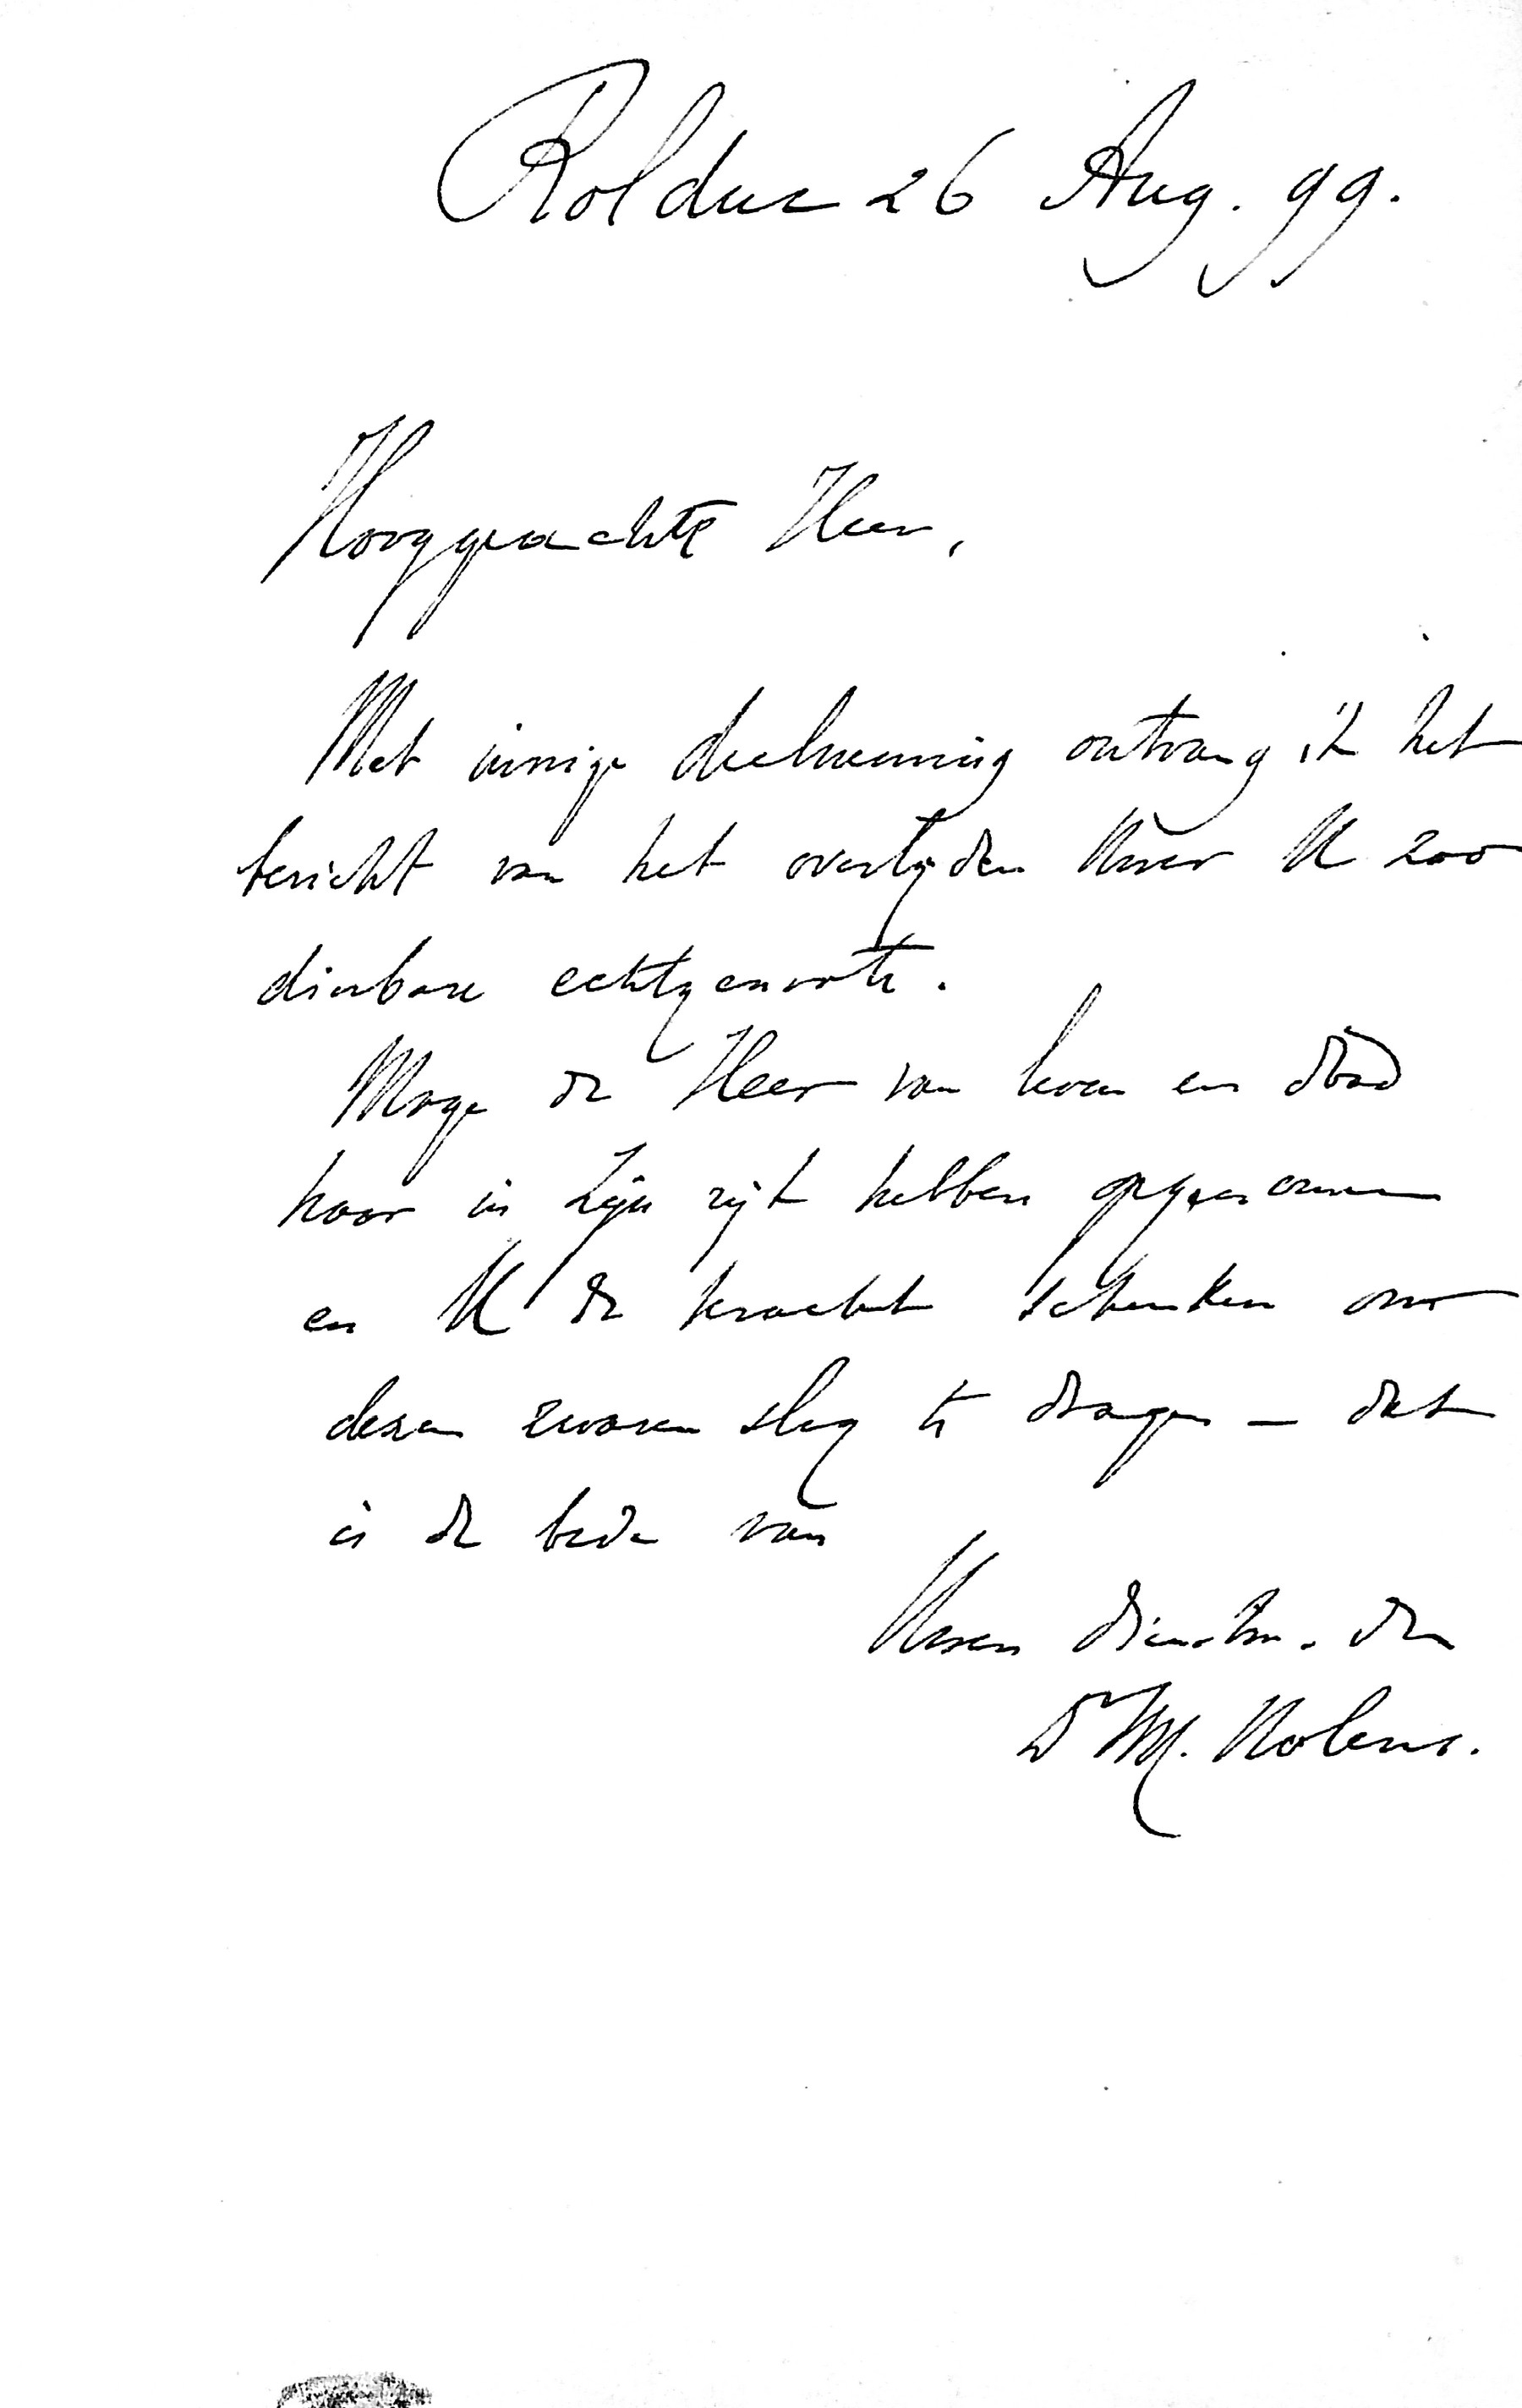 Rolduc 26 Aug. 99.
Hooggeachte Heer,
Met innige deelneming ontvang ik het
bericht van het overlijden Uwer U zoo
dierbare echtgenoote.
Moge de Heer van leven en dood
haar in Zijn rijk hebben opgenomen
en U de kracht schenken om
dezen zwaren slag te dragen — dat
is de bede van
Uwen dienstw. dr
Dr W. Nolens.